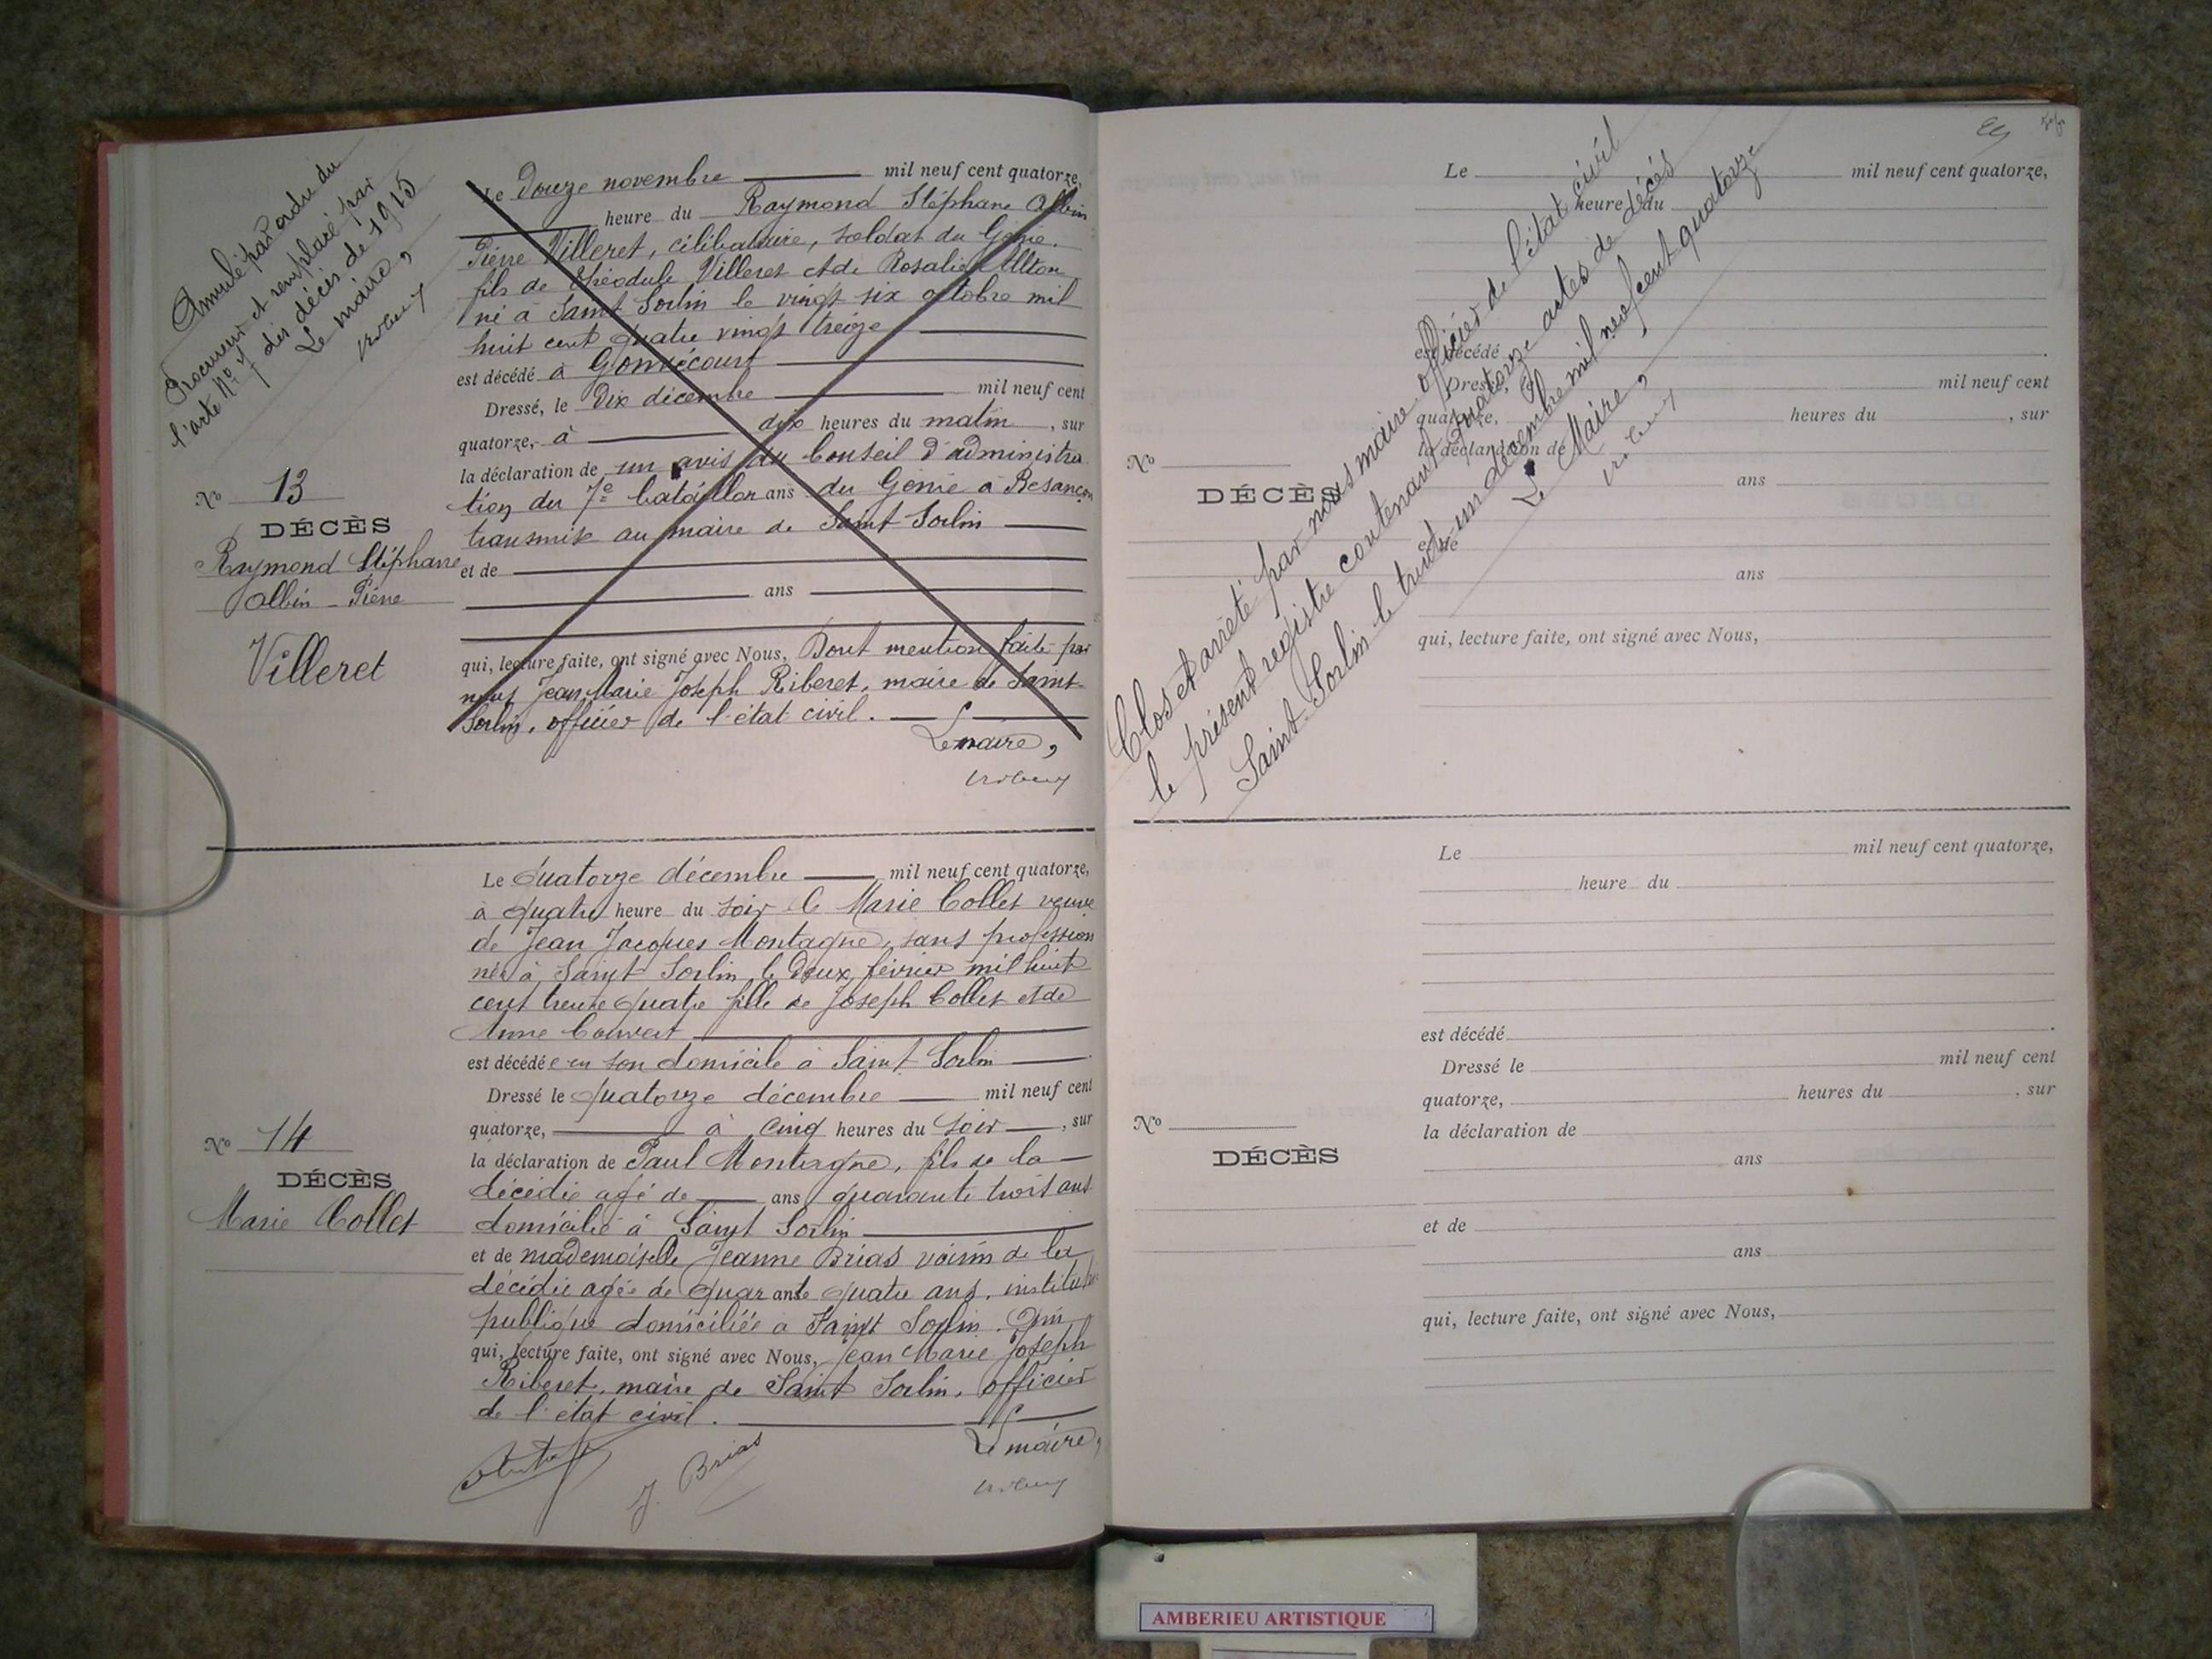 Annulé par ordre du
Procureur et remplacé par
l'acte No 7 des décès de 1915
Le maire,
No 13
DÉCÈS
Raymond Stéphane
Albin - Pierre
Villeret
Le Douze novembre mil neuf cent quatorze,
heure du Raymond Stéphane Albin
Pierre Villeret, célibataire, soldat du Génie.
fils de Théodule Villeret et de Rosalie Alton
né à Saint Sorlin le vingt six octobre mil
huit cent quatre vingt treize
est décédé à
Dressé, le Dix décembre mil neuf cent
quatorze, à dix heures du matin, sur
la déclaration de un avis du Conseil d'administra
tion du 7e bataillon ans du Génie à Besançon
transmise au maire de Saint Sorlin
et de
ans
qui, lecture faite, ont signé avec Nous, Dont mention faite par
nous Jean Marie Joseph Riberet, maire de Saint-
Sorlin, officier de l'état civil.
Le maire,
No 14
DÉCÈS
Marie Collet
Le Quatorze décembre mil neuf cent quatorze,
à quatre heure du soir Marie Collet veuve
de Jean Jacques Montagne, sans profession
née à Saint Sorlin le Deux février mil huit
cent trente quatre fille de Joseph Collet et de
Anne Convert
est décédée en son domicile à Saint Sorlin.
Dressé le quatorze décembre mil neuf cent
quatorze, à cinq heures du soir, sur
la déclaration de Paul Montagne, fils de la
décédée agé de ans quarante trois ans
domicilié à Saint Sorlin
et de mademoiselle Jeanne Brias voisin de la
décédée agée de quarante quatre ans,
publique domiciliée à Saint Sorlin. Qui
qui, lecture faite, ont signé avec Nous, Jean Marie Joseph
Riberet, maire de Saint Sorlin, officier
de l'état civil.
Le maire,
J. Brias
Le mil neuf cent quatorze,
heure du
est décédé.
Dressé, le mil neuf cent
quatorze, heures du, sur
la déclaration de
No
DÉCÈS
ans
et de
ans
qui, lecture faite, ont signé avec Nous,
Clos et arrêté par nous maire officier de l'état civil
le présent registre contenant quatorze actes de décès
Saint Sorlin le trente un décembre mil neuf cent quatorze
Le Maire,
Le mil neuf cent quatorze,
heure du
est décédé.
Dressé le mil neuf cent
quatorze, heures du, sur
la déclaration de
No
DÉCÈS
ans
et de
ans
qui, lecture faite, ont signé avec Nous,
AMBERIEU ARTISTIQUE